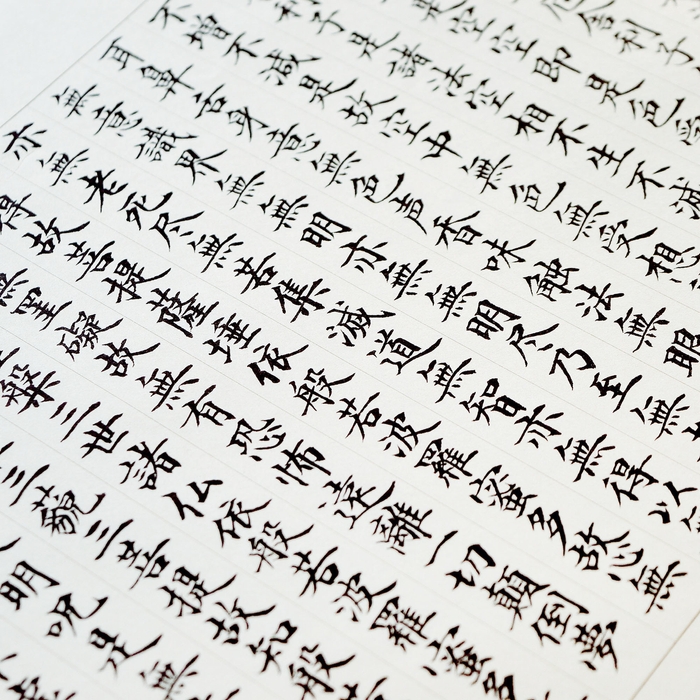 舍利子
是空空即是色受
利子是諸法空相不生不滅
不増不減是故空中無色無受想
耳鼻舌身意無色声香味触法無眼
無意識界無無明亦無無明尽乃至無
亦無老死尽無苦集滅道無智亦無得以
得故菩提薩埵依般若波羅蜜多故心無
無罣礙故無有恐怖遠離一切顛倒夢
槃三世諸仏依般若波羅蜜多
三藐三菩提故知般
明呪是無